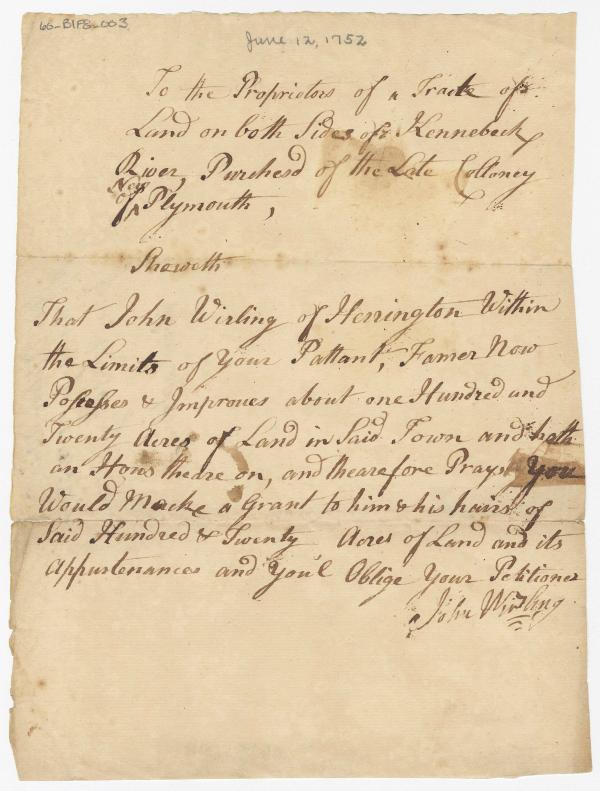 66-B1F8-003
June 12, 1752
To the Proprietors of a Tracte of
Land on both Sides of Kennebeck
River, Purchesd of the Late Colloney
of New Plymouth,
Sheweth
That John Wirling of Herrington Within
the Limits of Your Pattant, Famer Now
Posesses & Improues about one Hundred and
Twenty Acres of Land in Said Town and hath
an Hous theare on, and thearefore Prays You
Would Macke a Grant to him & his hairs of
Said Hundred & Twenty Acres of Land and its
Appurtenances and You'l Oblige Your Petitioner
John Wirling